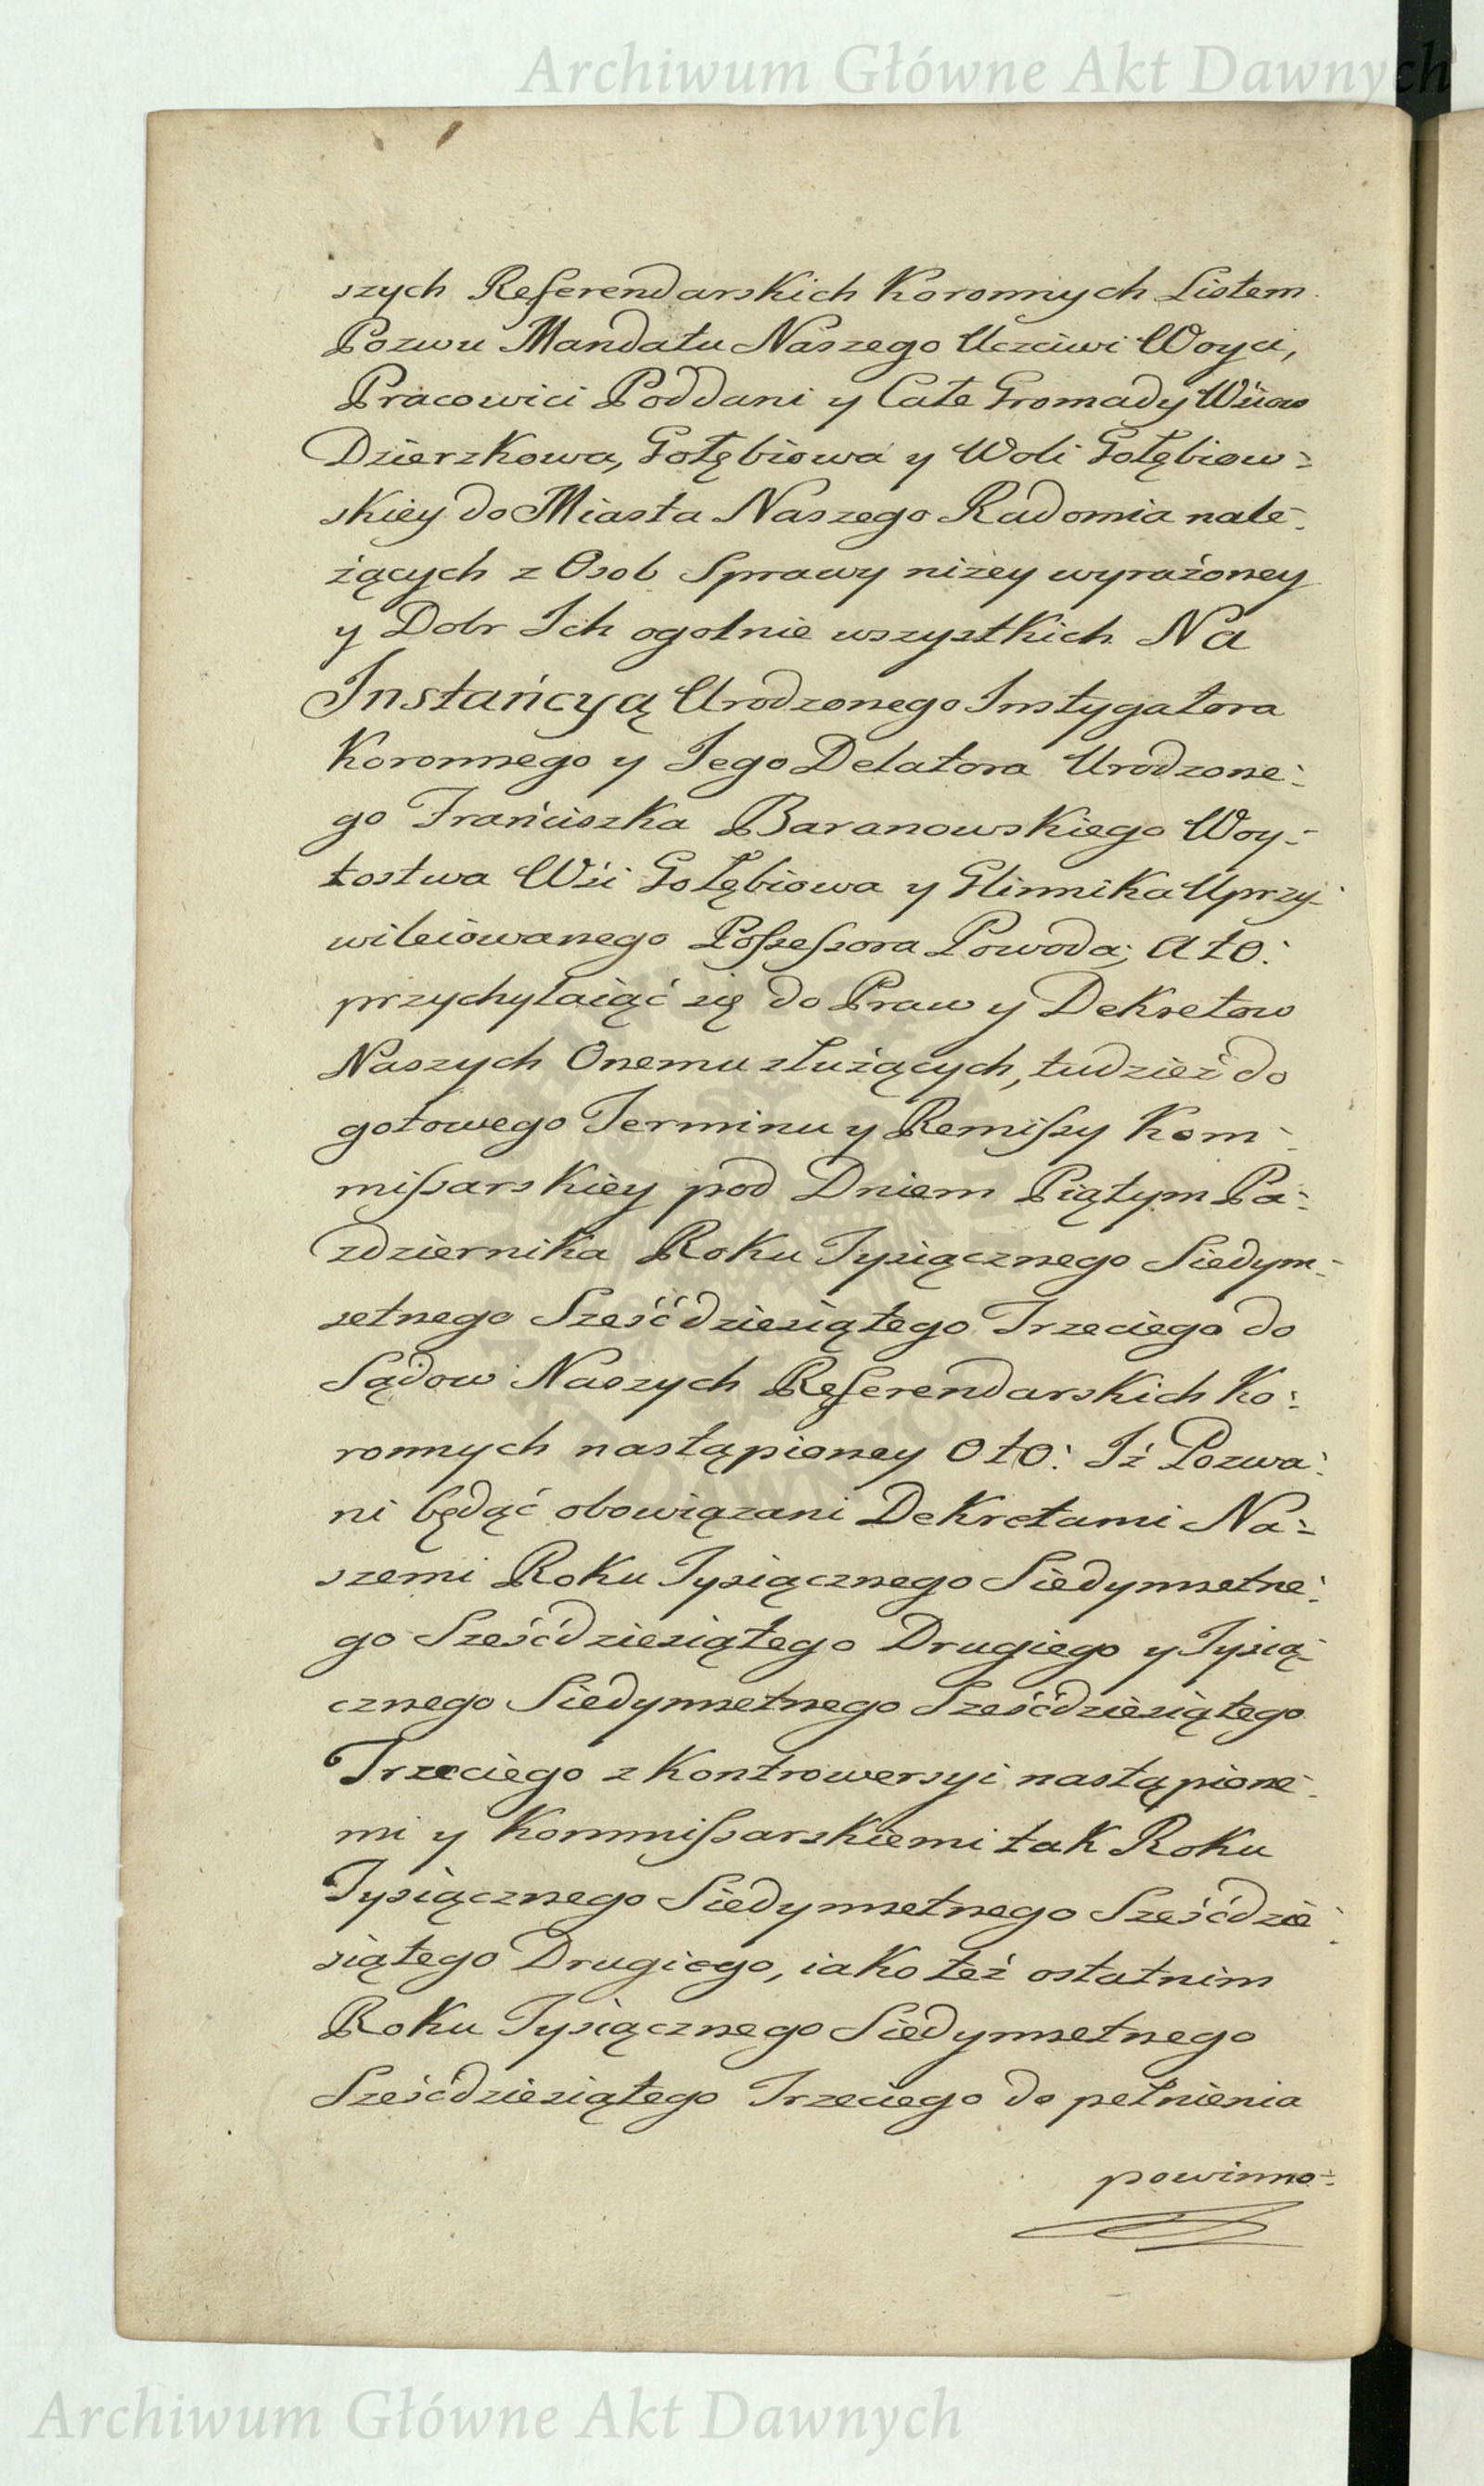 Archiwum Główne Akt Dawnych
szych Referendarskich Koronnych Listem
Pozwu Mandatu Naszego Uczciwi Woyci,
Pracowici Poddani y Całe Gromady Wsiow
Dzierzkowa, Gołębiowa y Woli Gołębiow-
skiey do Miasta Naszego Radomia nale-
żących z Osob Sprawy niżey wyrażoney
y Dobr Ich ogolnie wszystkich Na
Instańcyą Urodzonego Instygatora
Koronnego y Jego Delatora Urodzone-
go Frańciszka Baranowskiego Woy-
tostwa Wśi Gołębiowa y Glinnika Uprzy-
wileiowanego Possessora Powoda; Ato:
przychylaiąć się do Praw y Dekretow
Naszych Onemu służących, tudzież do
gotowego Terminu y Remissy Kom-
missarskiey pod Dniem Piątym Pa-
zdziernika Roku Tysiącznego Siedym-
setnego Sześćdziesiątego Trzeciego do
Sądow Naszych Referendarskich Ko-
ronnych nastąpioney Oto: Iż Pozwa-
ni będąć obowiązani Dekretami Na-
szemi Roku Tysiącznego Siedymsetne-
go Sześćdziesiątego Drugiego y Tysią-
cznego Siedymsetnego Sześćdziesiątego
Trzeciego z Kontrowersyi nastąpione-
mi y Kommissarskiemi tak Roku
Tysiącznego Siedymsetnego Sześćdzie-
siątego Drugiego, iako też ostatnim
Roku Tysiącznego Siedymsetnego
Sześćdziesiątego Trzeciego do pełnienia
powinno-
Archiwum Główne Akt Dawnych